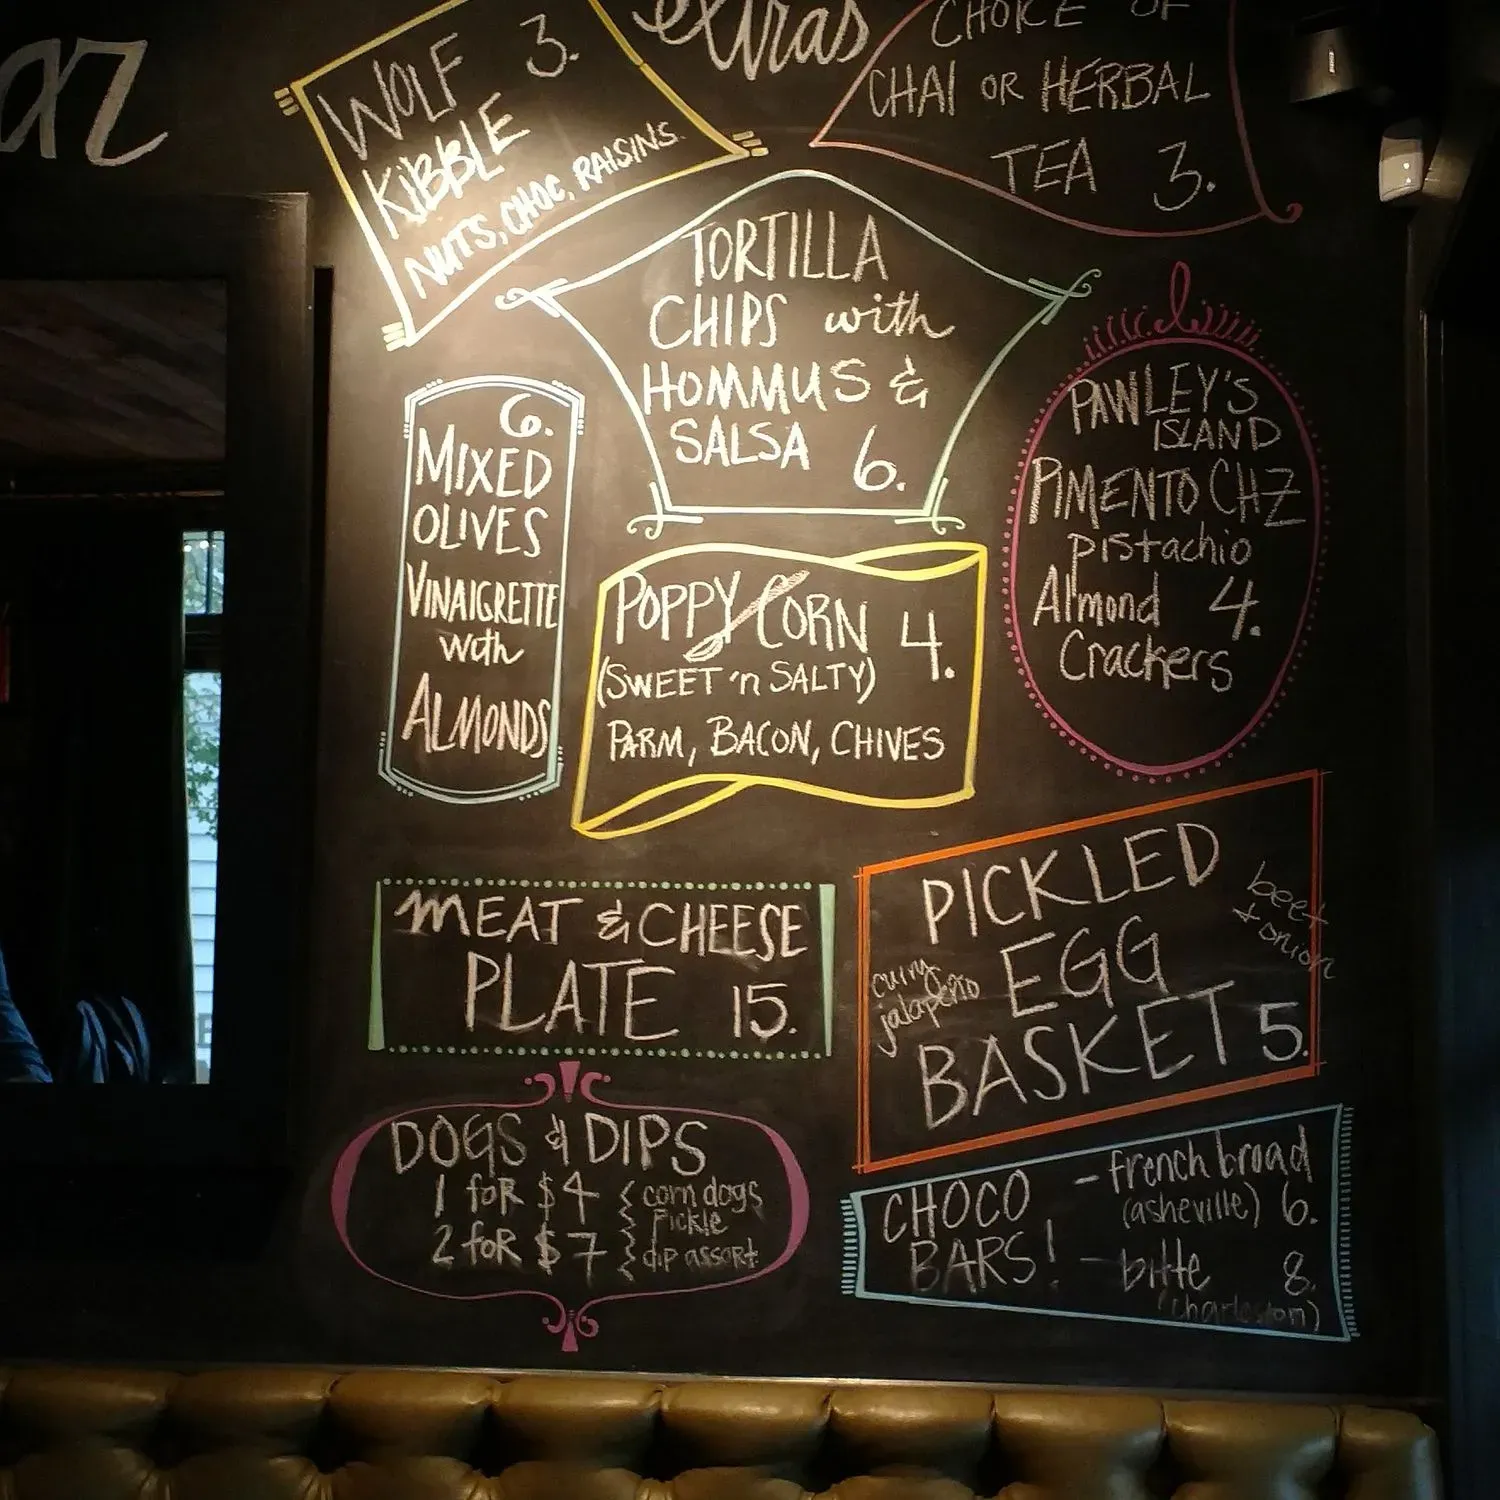 ar
extras
WOLF 3.
KIBBLE
NUTS, CHOC, RAISINS.
CHOICE OF
CHAI OR HERBAL
TEA 3.
TORTILLA
CHIPS with
HOMMUS &
SALSA 6.
6.
MIXED
OLIVES
VINAIGRETTE
with
ALMONDS
PAWLEY'S
ISLAND
PIMENTO CHZ
pistachio
Almond 4.
Crackers
POPPY CORN 4.
(SWEET 'n SALTY)
PARM, BACON, CHIVES
MEAT & CHEESE
PLATE 15.
PICKLED
EGG
BASKET 5.
beet
+ onion
curry
jalapeño
DOGS & DIPS
1 FOR $4 corn dogs
Pickle
2 FOR $7 dip assort.
CHOCO
BARS!
- french broad
(asheville) 6.
- bitte 8.
(charleston)